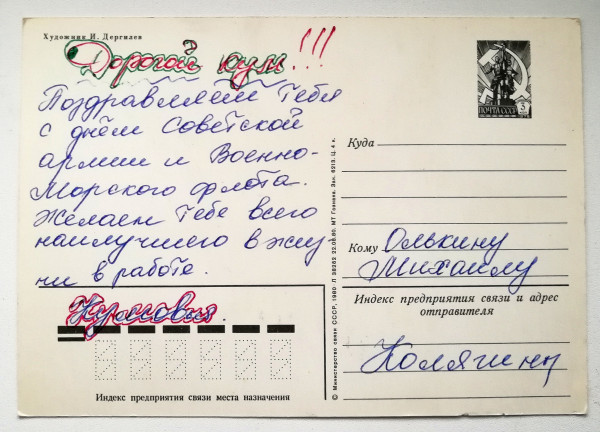 Художник И. Дергилев
Дорогой кум!!!
Поздравляем Тебя
с днём Советской
армии и Военно-
Морского флота.
Желаем Тебе всего
наилучшего в жиз-
ни в работе.
Кумовья.
ПОЧТА СССР
Куда
Кому Олькину
Михаилу
Индекс предприятия связи и адрес
отправителя
Колягины
Индекс предприятия связи места назначения
© Министерство связи СССР, 1980 Л 38262 22.08.80. МТ Гознака. Зак. 6213. Ц. 4 к.